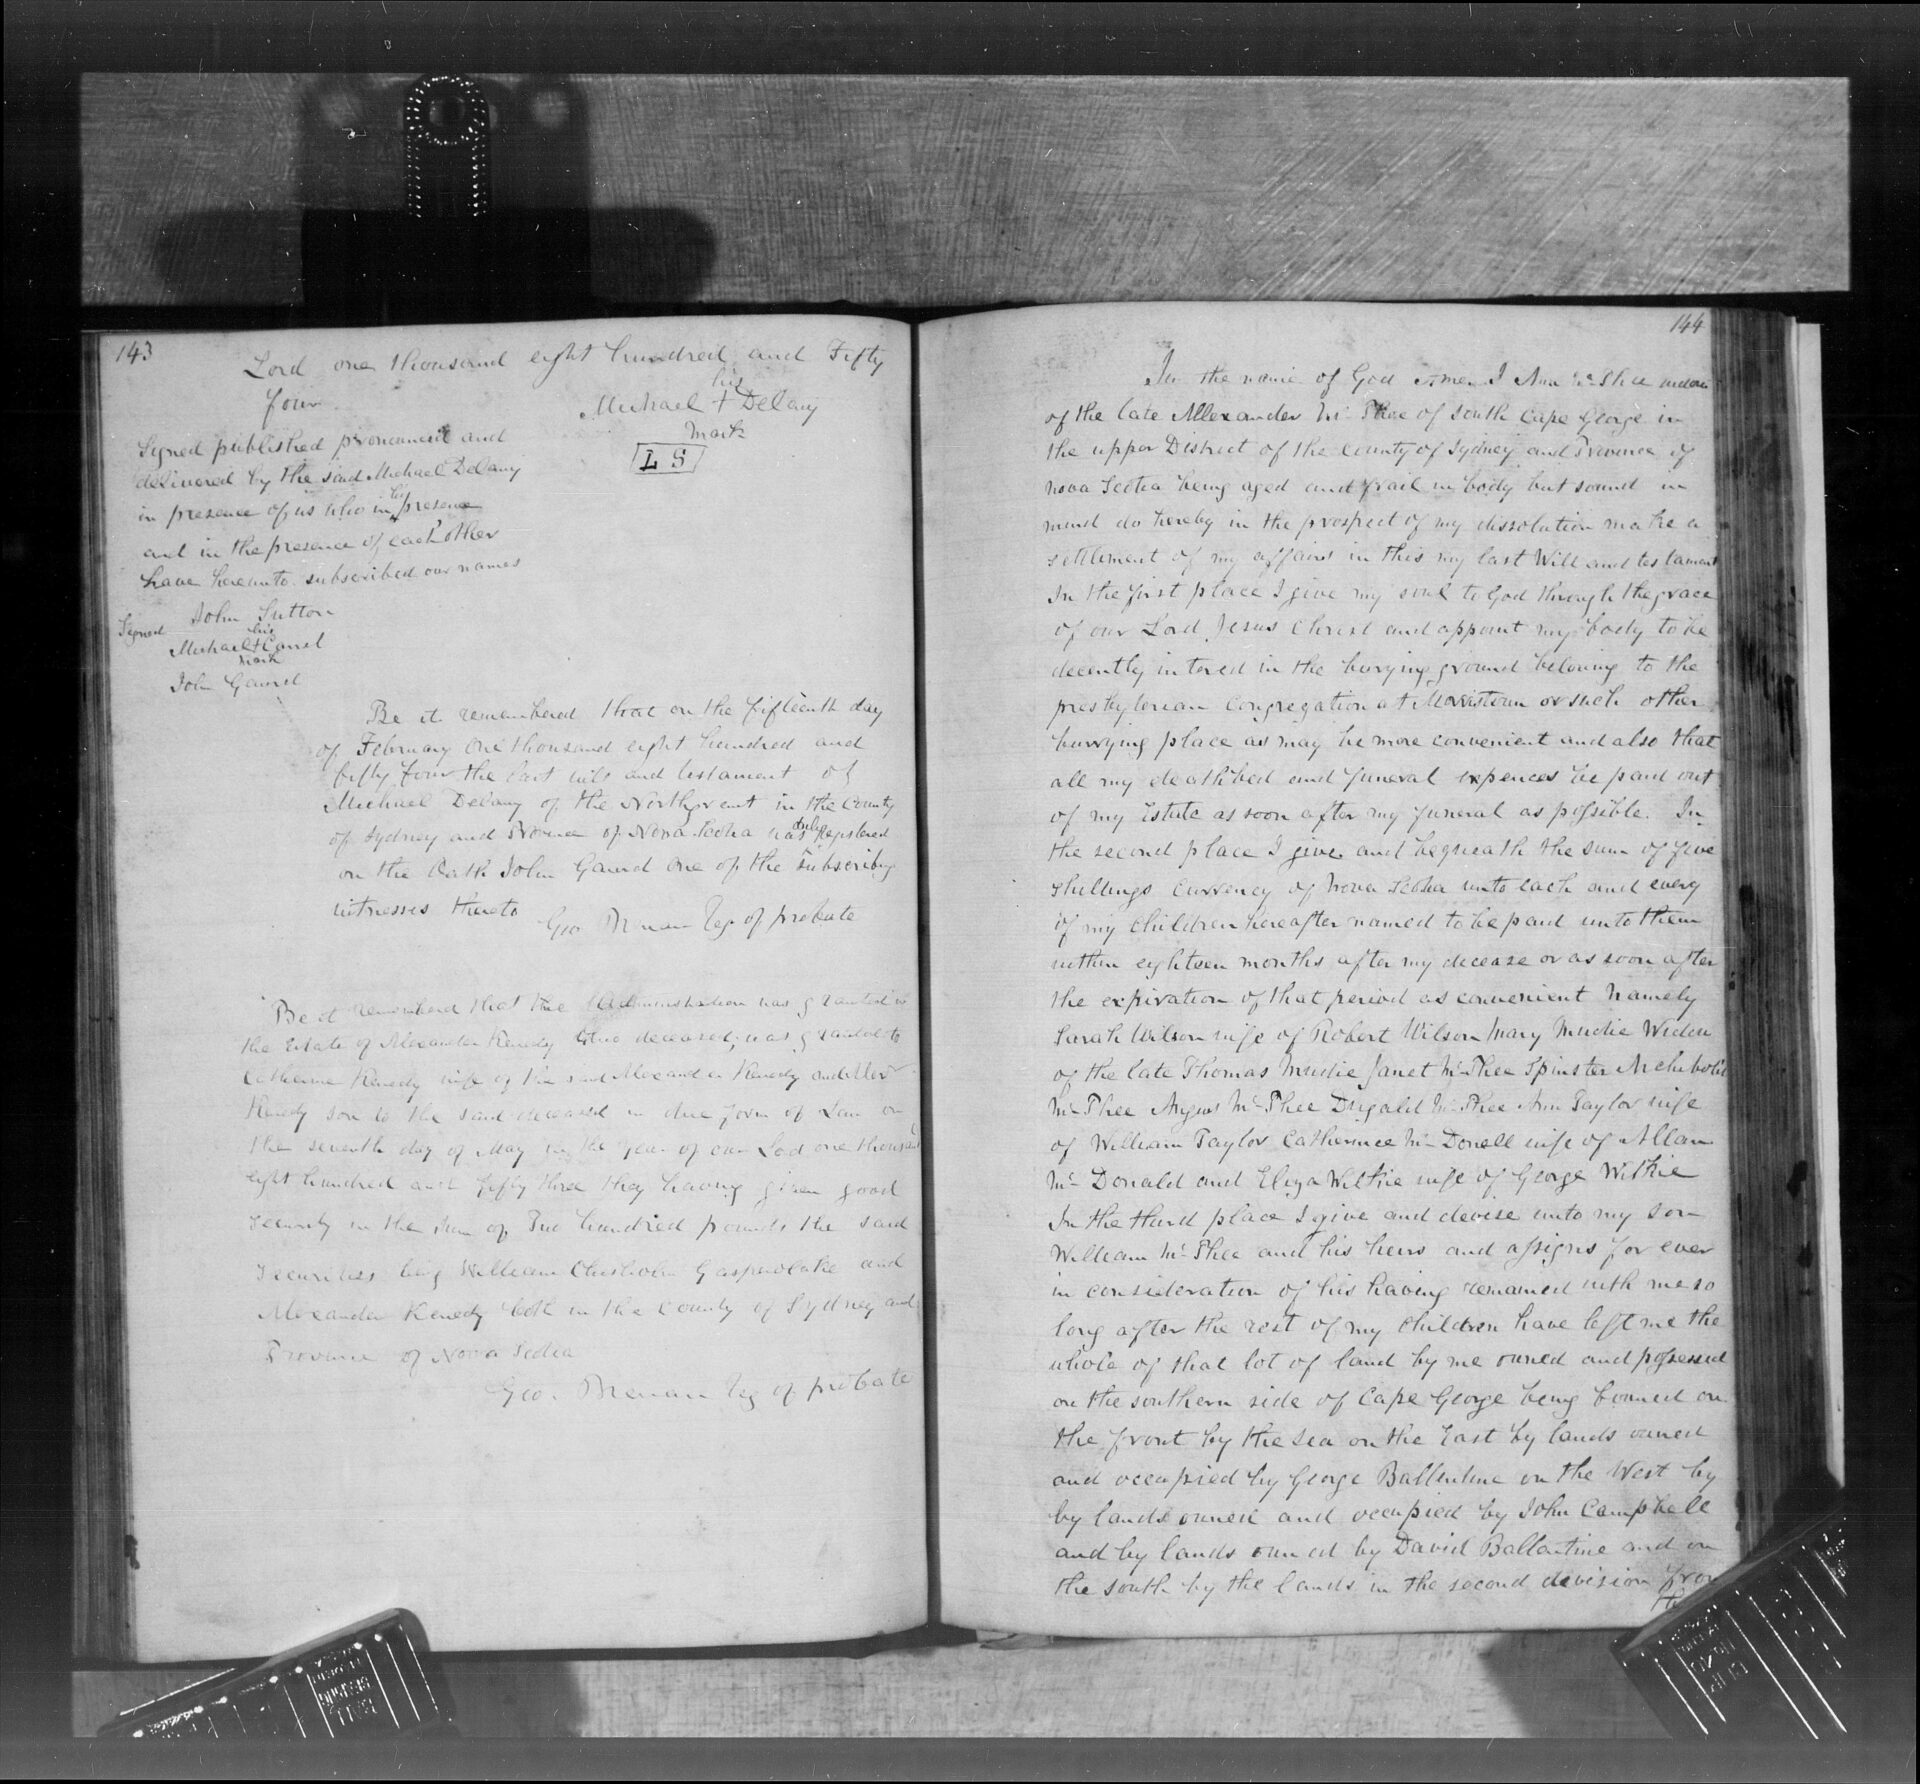 143
Lord one thousand eight hundred and Fifty
four
his
Michael + Delany
mark
L S
Signed published pronounced and
delivered by the said Michael Delany
in presence of us who in his presence
and in the presence of each other
have hereunto subscribed our names
Signed John Sutton
his
Michael + Carrel
mark
John
Be it remembered that on the fifteenth day
of February One thousand eight hundred and
fifty four the last will and testament of
Michael Delany of the in the County
of Sydney and Province of Nova Scotia was duly Registered
on the Oath John one of the Subscribing
witnesses thereto
Geo Brenan Reg of probate
Be it remembered that the Administration was granted
the Estate of Alexander Kenedy deceased, was granted to
Catherine Kenedy wife of the said Alexander Kenedy and
Kenedy son to the said deceased in due form of Law on
the seventh day of May in the year of our Lord one thousand
eight hundred and fifty three they having given good
security in the sum of Two hundred pounds the said
Securities being William Chisholm and
Alexander Kenedy both in the County of Sydney and
Province of Nova Scotia
Geo. Brenan Reg of probate
144
In the name of God Amen I Ann McPhee widow
of the late Allexander McPhee of South Cape George in
the upper District of the County of Sydney and Province of
Nova Scotia being aged and frail in body but sound in
mind do hereby in the prospect of my dissolution make a
settlement of my affairs in this my last Will and testament
In the first place I give my soul to God through the grace
of our Lord Jesus Christ and appoint my body to be
decently intered in the burying ground belonging to the
presbyterian Congregation at Morristown or such other
burying place as may be more convenient and also that
all my deathbed and funeral expences be paid out
of my Estate as soon after my funeral as possible. In
the second place I give and bequeath the sum of five
shillings Currency of Nova Scotia unto each and every
of my Children hereafter named to be paid unto them
within eighteen months after my decease or as soon after
the expiration of that period as convenient Namely
Sarah Wilson wife of Robert Wilson Mary Mudie Widow
of the late Thomas Mudie Janet McPhee Spinster Archibold
McPhee Angus McPhee Dugald McPhee Ann Taylor wife
of William Taylor Catherinee McDonell wife of Allan
McDonald and Eliza Wilkie wife of George Wilkie
In the third place I give and devise unto my son
William McPhee and his heirs and assigns for ever
in consideration of his having remained with me so
long after the rest of my children have left me the
whole of that lot of land by me owned and possessed
on the southern side of Cape George being bouned on
the front by the sea on the East by lands owned
and occupied by George Ballentine on the West by
by lands owned and occupied by John Campbell
and by lands owned by David Ballantine and on
the south by the lands in the second devision from
the